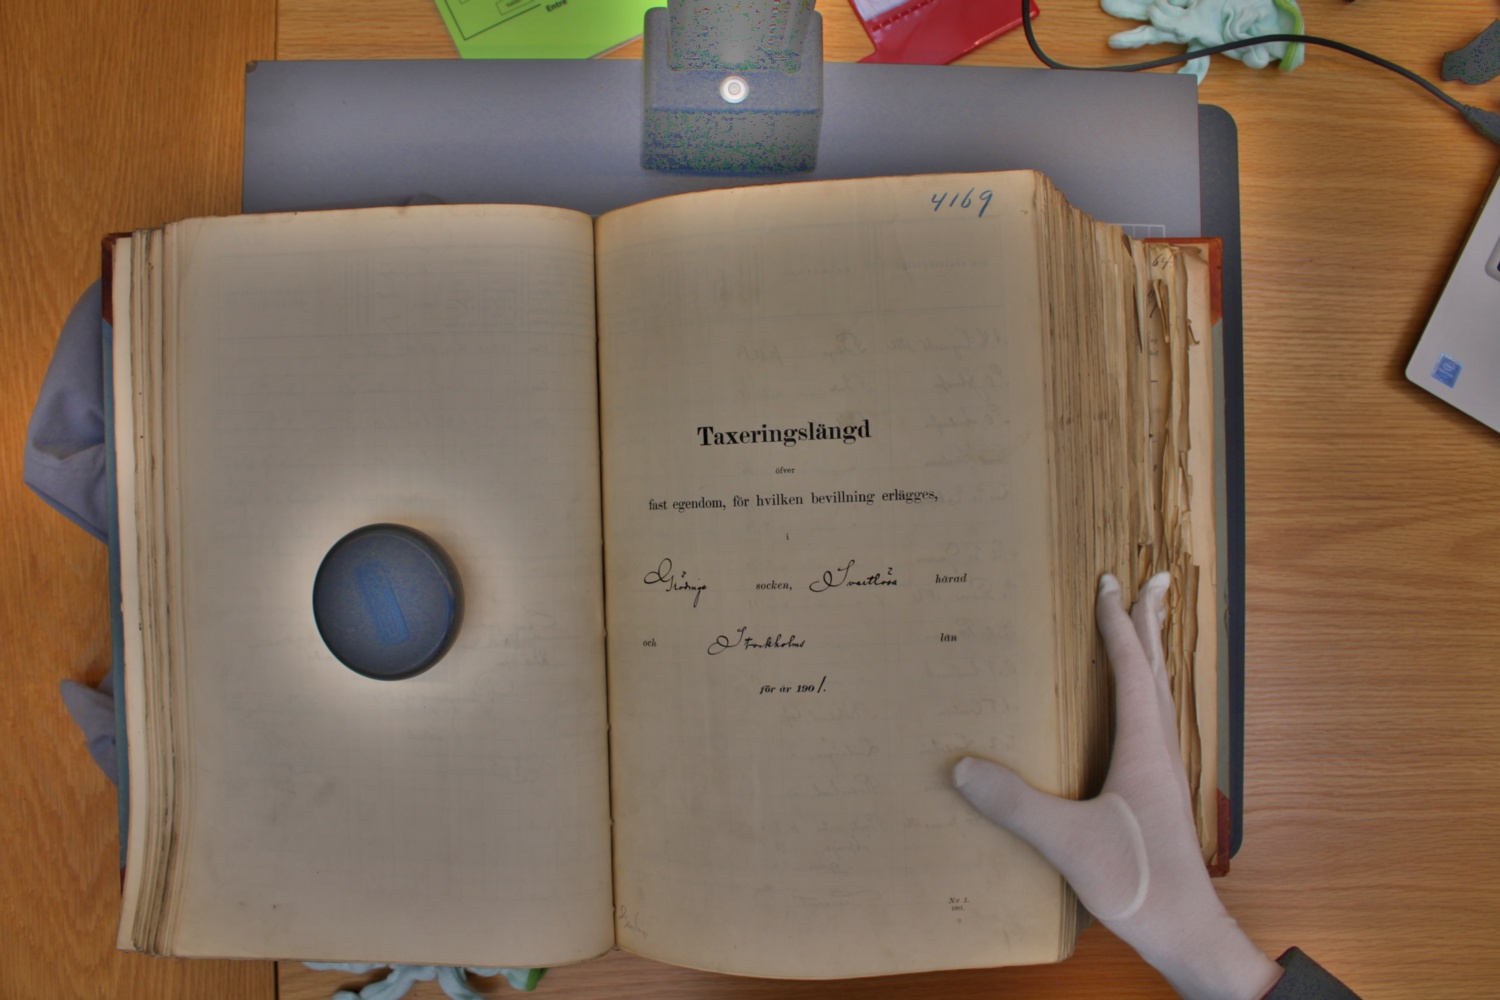 Entré
4169
64
Taxeringslängd
öfver
fast egendom, för hvilken bevillning erlägges,
i
Grödinge socken, Svartlösa härad
och Stockholms län
för år 1901.
Nr 1.
1901.